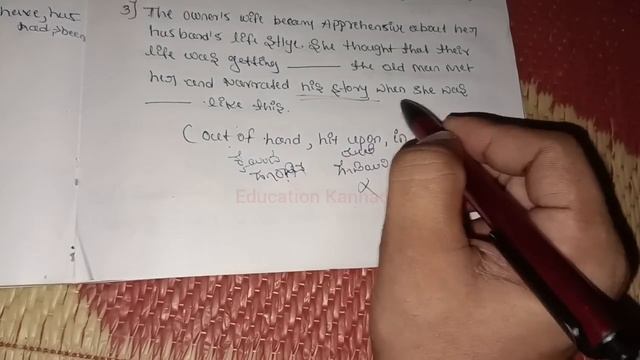 have, has
had, been
3] The owner's wife became Apprehensive about her
husband's life style. She thought that their
life was getting ______ the old man met
her and narrated his story when she was
______ like this.
(out of hand, hit upon, in
Education Kannada